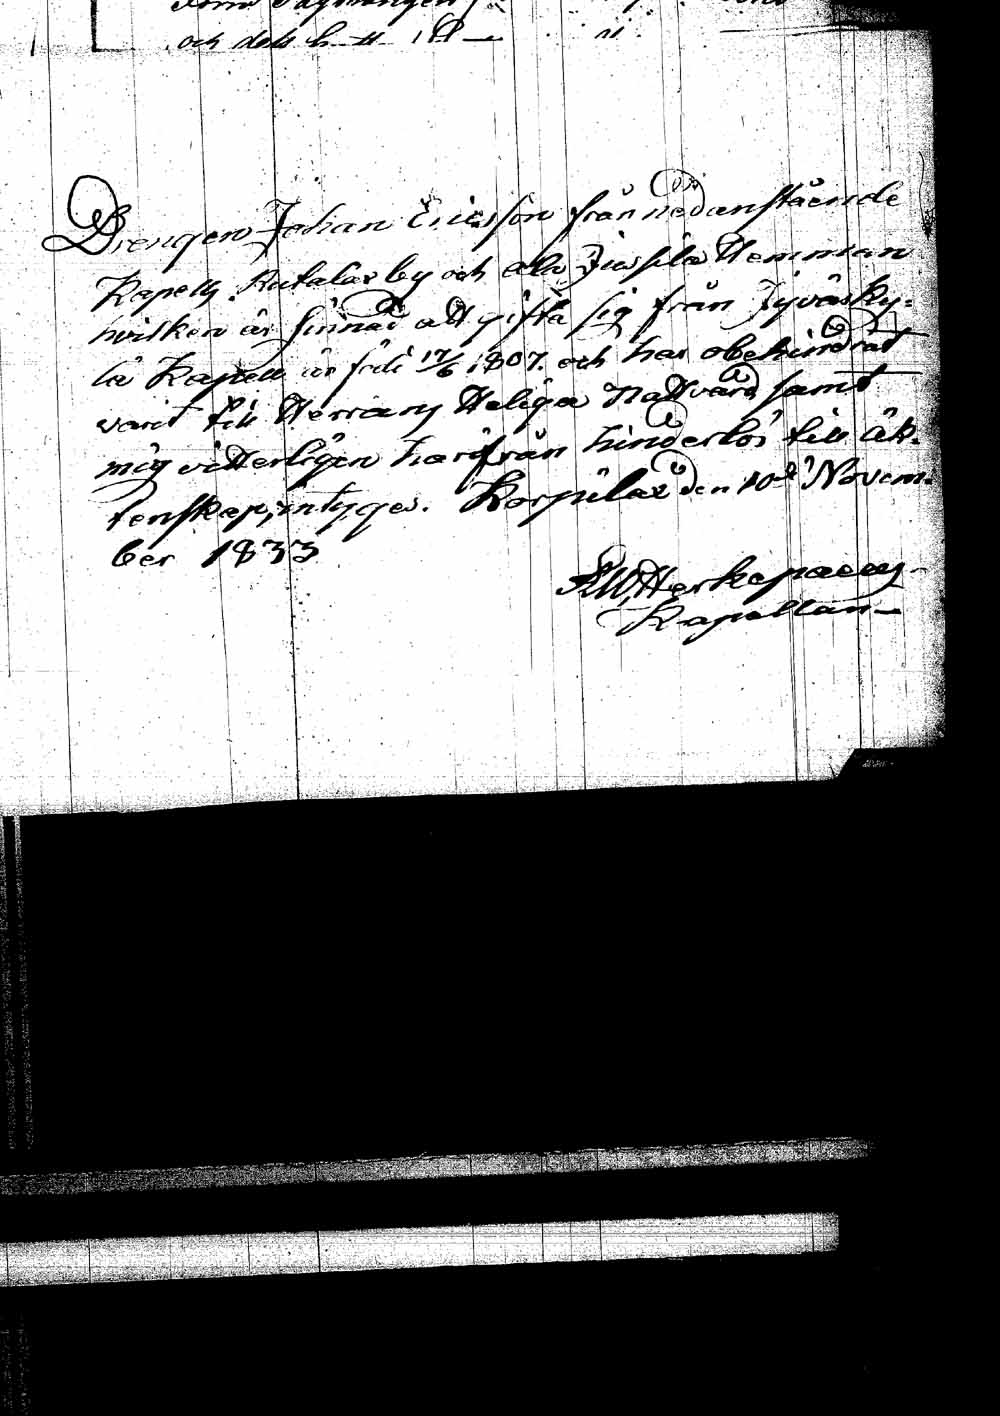 och
Drengen Johan Ericsson från nedanstående
Kapells Rutalax by och Hemman
hvilken är sinnad att gifta sig från Jyväsky-
lä Kapell är född 17/6 1807. och har obehindrat
varit till Herrans Heliga Nattvard samt
mig vitterligen härifrån hinderlös till äk-
tenskap, intygas. Korpilax den 10de Novem-
ber 1833
Kapellan